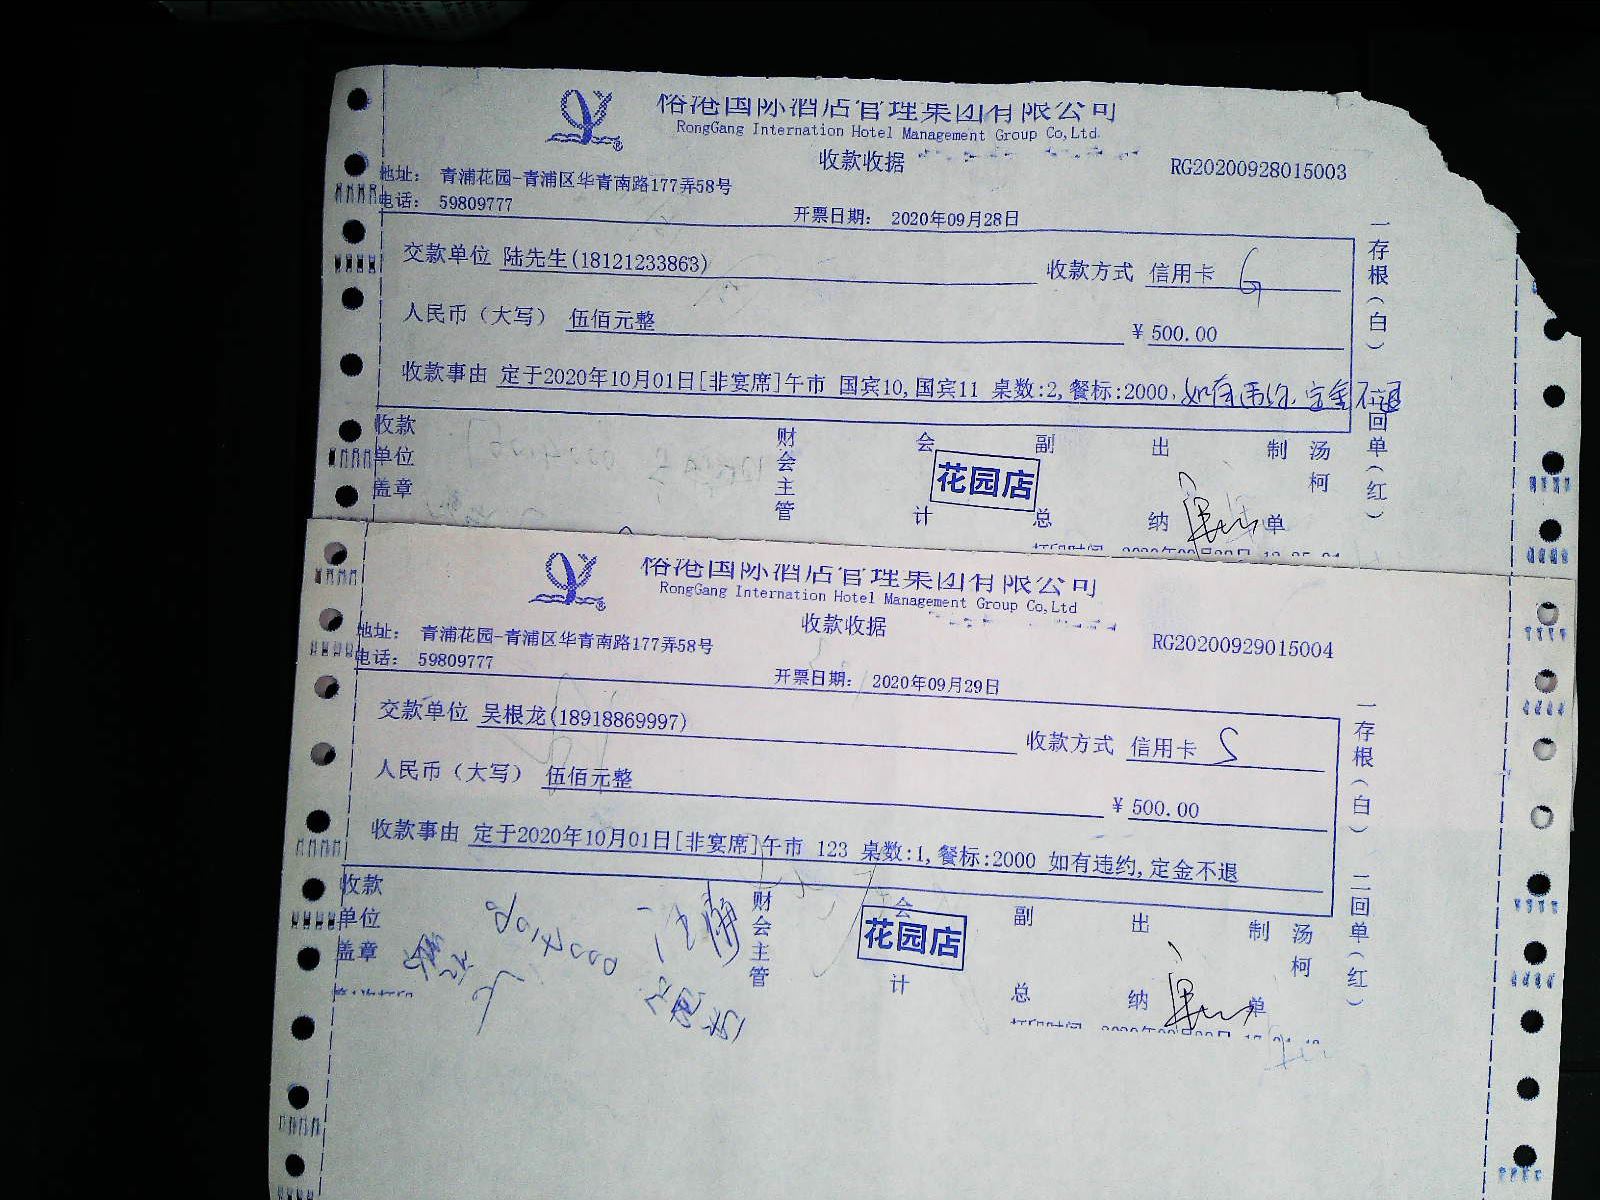 裕港国际酒店管理集团有限公司
RongGang Internation Hotel Management Group Co,Ltd.
收款收据
RG20200928015003
地址： 青浦花园-青浦区华青南路177弄58号
电话： 59809777
开票日期： 2020年09月28日
交款单位 陆先生(18121233863) 收款方式 信用卡 G
人民币（大写） 伍佰元整 ¥ 500.00
收款事由 定于2020年10月01日[非宴席]午市 国宾10,国宾11 桌数:2,餐标:2000, 如有违约 定金不退
一存根（白）
二回单（红）
收款单位盖章 财会主管 会计 副总 出纳 制单 汤柯
花园店
裕港国际酒店管理集团有限公司
RongGang Internation Hotel Management Group Co,Ltd
收款收据
RG20200929015004
地址： 青浦花园-青浦区华青南路177弄58号
电话： 59809777
开票日期： 2020年09月29日
交款单位 吴根龙(18918869997) 收款方式 信用卡 S
人民币（大写） 伍佰元整 ¥ 500.00
收款事由 定于2020年10月01日[非宴席]午市 123 桌数:1,餐标:2000 如有违约,定金不退
一存根（白）
二回单（红）
收款单位盖章 财会主管 会计 副总 出纳 制单 汤柯
花园店